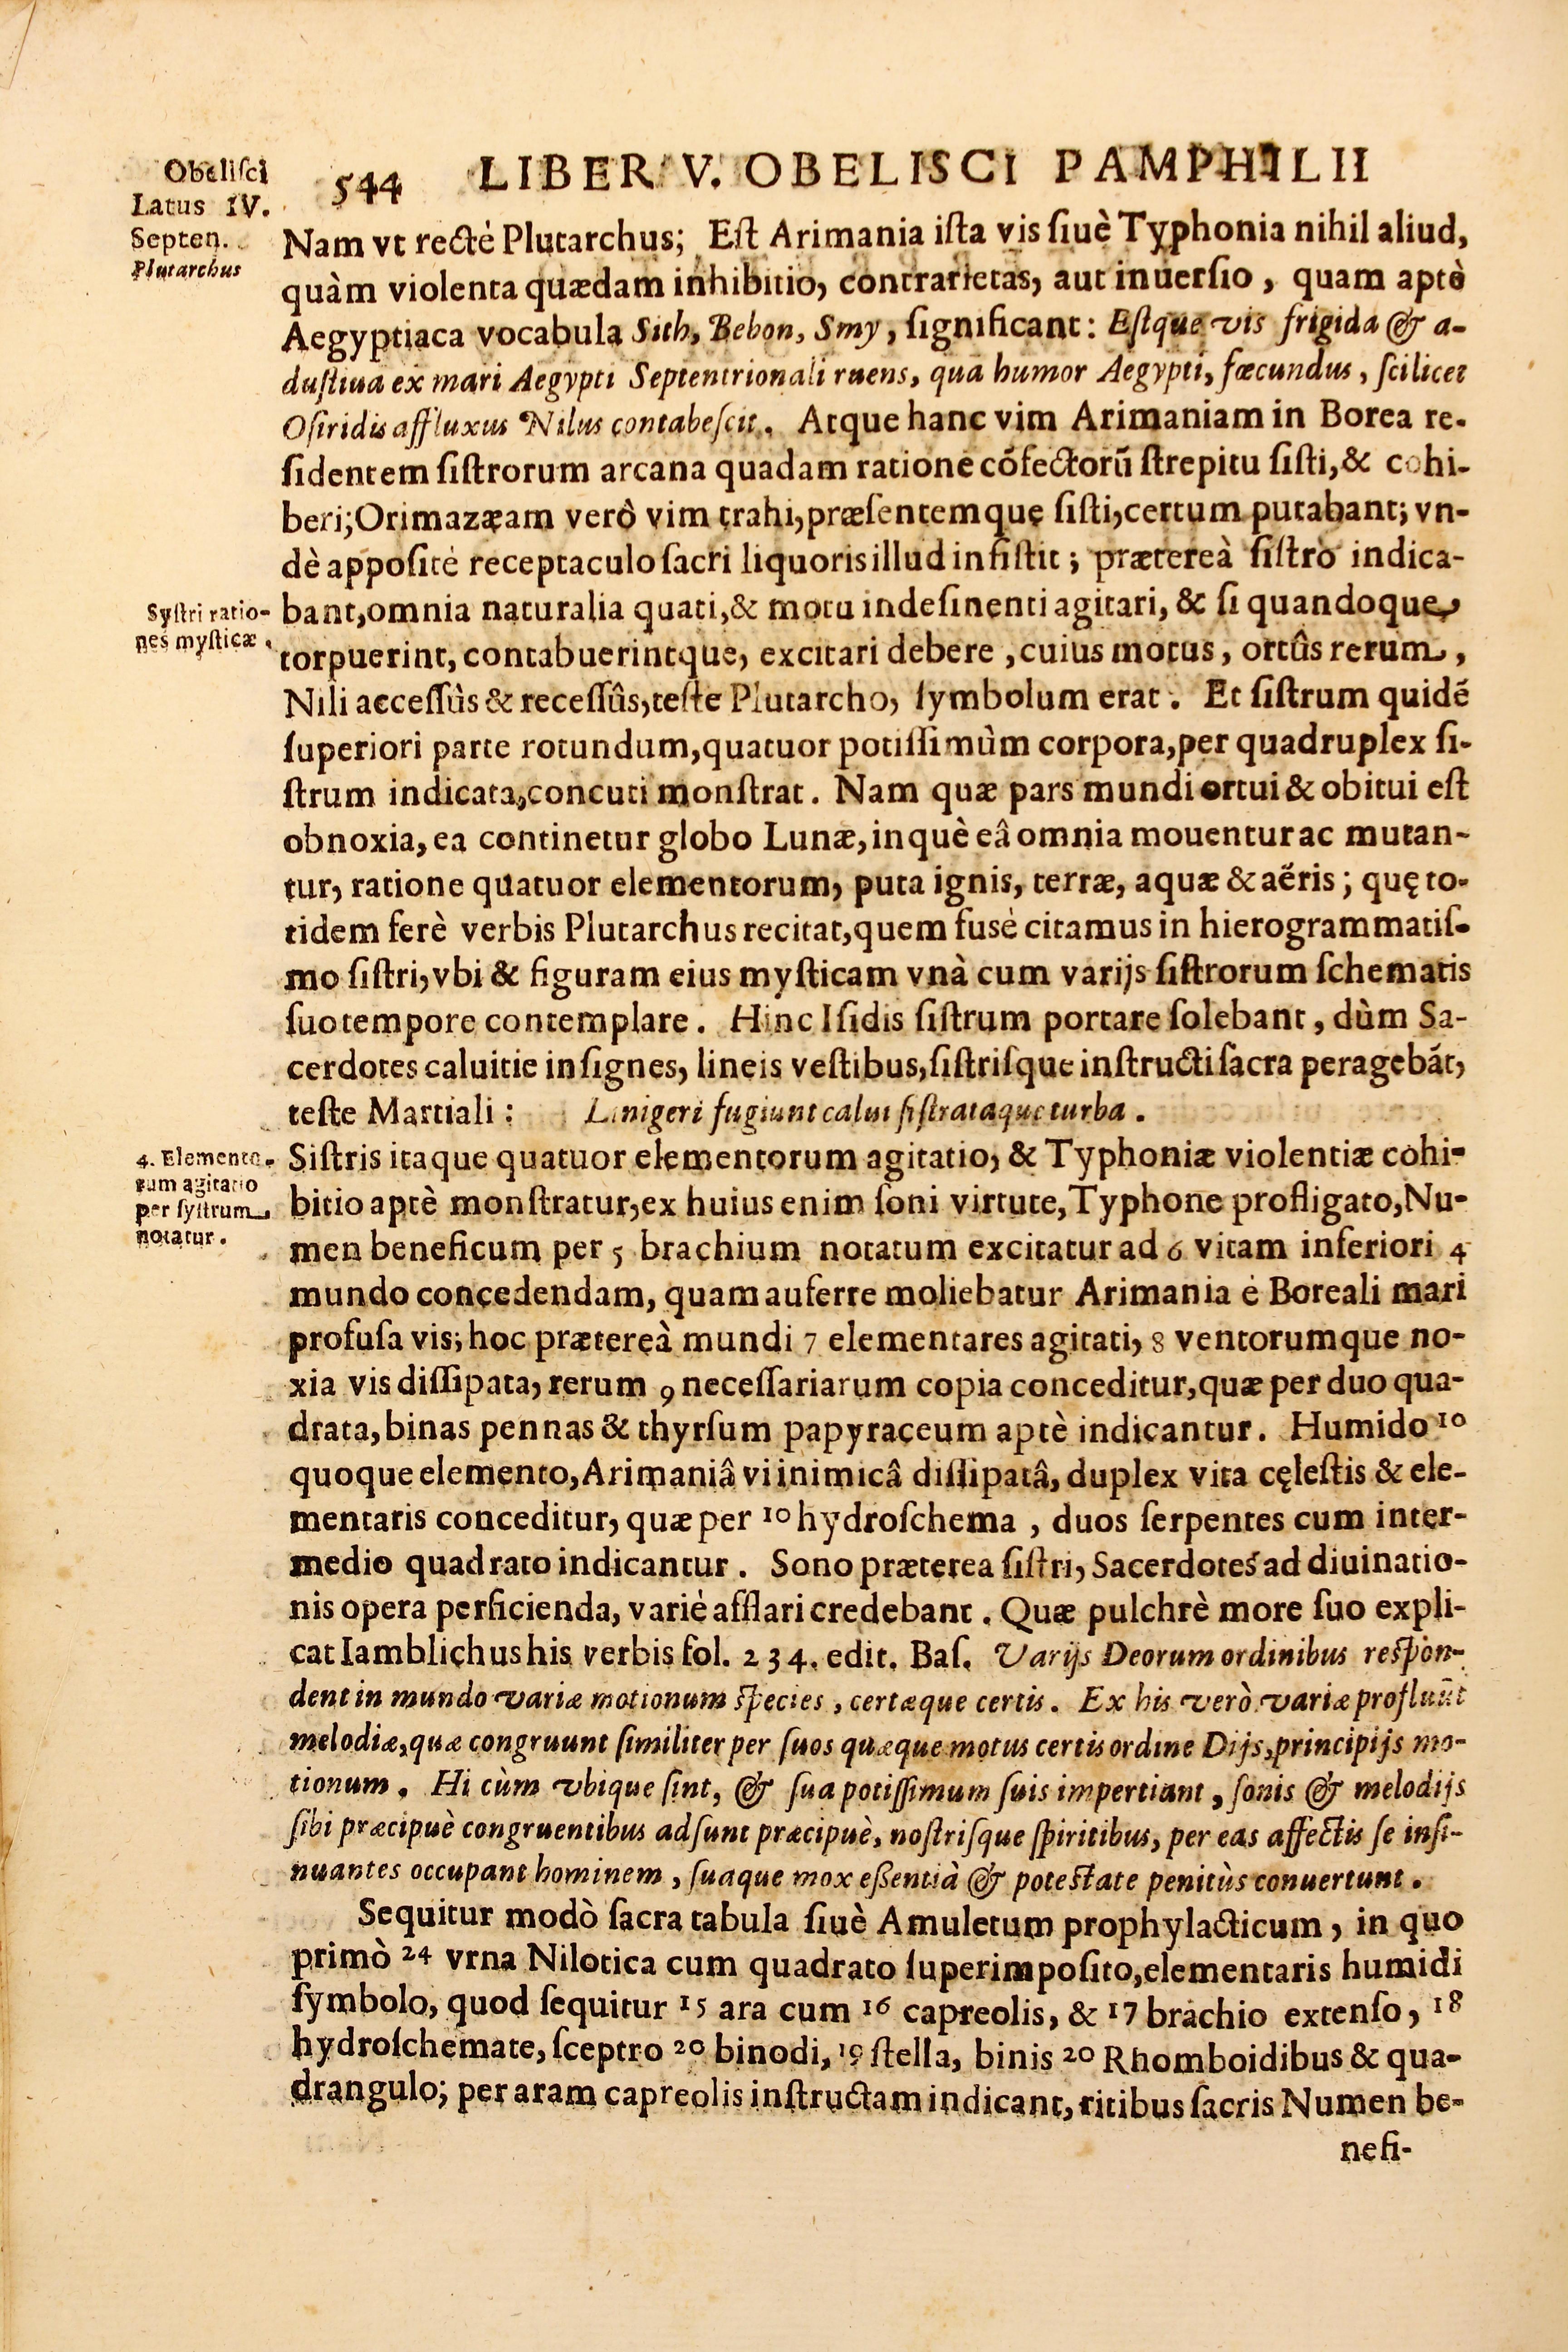 Obeliſci
Latus IV.
Septen.
Plutarchus
544 LIBER V. OBELISCI PAMPHILII
Nam vt rectè Plutarchus; Eſt Arimania iſta vis ſiuè Typhonia nihil aliud,
quàm violenta quædam inhibitio, contrarietas, aut inuerſio, quam aptè
Aegyptiaca vocabula Sith, Bebon, Smy, ſignificant: Eſtque vis frigida & a-
duſtiua ex mari Aegypti Septentrionali ruens, qua humor Aegypti, fœcundus, ſcilicet
Oſiridis affluxus Nilus contabeſcit. Atque hanc vim Arimaniam in Borea re-
ſidentem ſiſtrorum arcana quadam ratione cõfectorũ ſtrepitu ſiſti, & cohi-
beri; Orimazæam verò vim trahi, præſentemque ſiſti, certum putabant; vn-
dè appoſitè receptaculo ſacri liquoris illud inſiſtit; prætereà ſiſtro indica-
Syſtri ratio-
nes myſticæ.
bant, omnia naturalia quati, & motu indeſinenti agitari, & ſi quandoque
torpuerint, contabuerintque, excitari debere, cuius motus, ortûs rerum,
Nili acceſſùs & receſſûs, teſte Plutarcho, ſymbolum erat. Et ſiſtrum quidẽ
ſuperiori parte rotundum, quatuor potiſſimùm corpora, per quadruplex ſi-
ſtrum indicata, concuti monſtrat. Nam quæ pars mundi ortui & obitui eſt
obnoxia, ea continetur globo Lunæ, inquè eâ omnia mouentur ac mutan-
tur, ratione quatuor elementorum, puta ignis, terræ, aquæ & aëris; quę to-
tidem ferè verbis Plutarchus recitat, quem fusè citamus in hierogrammatiſ-
mo ſiſtri, vbi & figuram eius myſticam vnà cum varijs ſiſtrorum ſchematis
ſuo tempore contemplare. Hinc Iſidis ſiſtrum portare ſolebant, dùm Sa-
cerdotes caluitie inſignes, lineis veſtibus, ſiſtriſque inſtructi ſacra peragebãt,
teſte Martiali: Linigeri fugiunt calui ſiſtrataque turba.
4. Elemento-
rum agitatio
per ſyſtrum
notatur.
Siſtris itaque quatuor elementorum agitatio, & Typhoniæ violentiæ cohi-
bitio aptè monſtratur, ex huius enim ſoni virtute, Typhone profligato, Nu-
men beneficum per 5 brachium notatum excitatur ad 6 vitam inferiori 4
mundo concedendam, quam auferre moliebatur Arimania è Boreali mari
profuſa vis; hoc prætereà mundi 7 elementares agitati, 8 ventorumque no-
xia vis diſſipata, rerum 9 neceſſariarum copia conceditur, quæ per duo qua-
drata, binas pennas & thyrſum papyraceum aptè indicantur. Humido 10
quoque elemento, Arimaniâ vi inimicâ diſſipatâ, duplex vita cęleſtis & ele-
mentaris conceditur, quæ per 10 hydroſchema, duos ſerpentes cum inter-
medio quadrato indicantur. Sono præterea ſiſtri, Sacerdotes ad diuinatio-
nis opera perficienda, variè afflari credebant. Quæ pulchrè more ſuo expli-
cat Iamblichus his verbis fol. 234. edit. Baſ. Varijs Deorum ordinibus reſpon-
dent in mundo variæ motionum ſpecies, certæque certis. Ex his verò variæ profluũt
melodiæ, quæ congruunt ſimiliter per ſuos quæque motus certis ordine Dijs, principijs mo-
tionum. Hi cùm vbique ſint, & ſua potiſſimum ſuis impertiant, ſonis & melodijs
ſibi præcipuè congruentibus adſunt præcipuè, noſtriſque ſpiritibus, per eas affectis ſe inſi-
nuantes occupant hominem, ſuaque mox eſſentià & poteſtate penitùs conuertunt.
Sequitur modò ſacra tabula ſiuè Amuletum prophylacticum, in quo
primò 24 vrna Nilotica cum quadrato ſuperimpoſito, elementaris humidi
ſymbolo, quod ſequitur 15 ara cum 16 capreolis, & 17 brachio extenſo, 18
hydroſchemate, ſceptro 20 binodi, 19 ſtella, binis 20 Rhomboidibus & qua-
drangulo; per aram capreolis inſtructam indicant, ritibus ſacris Numen be-
nefi-